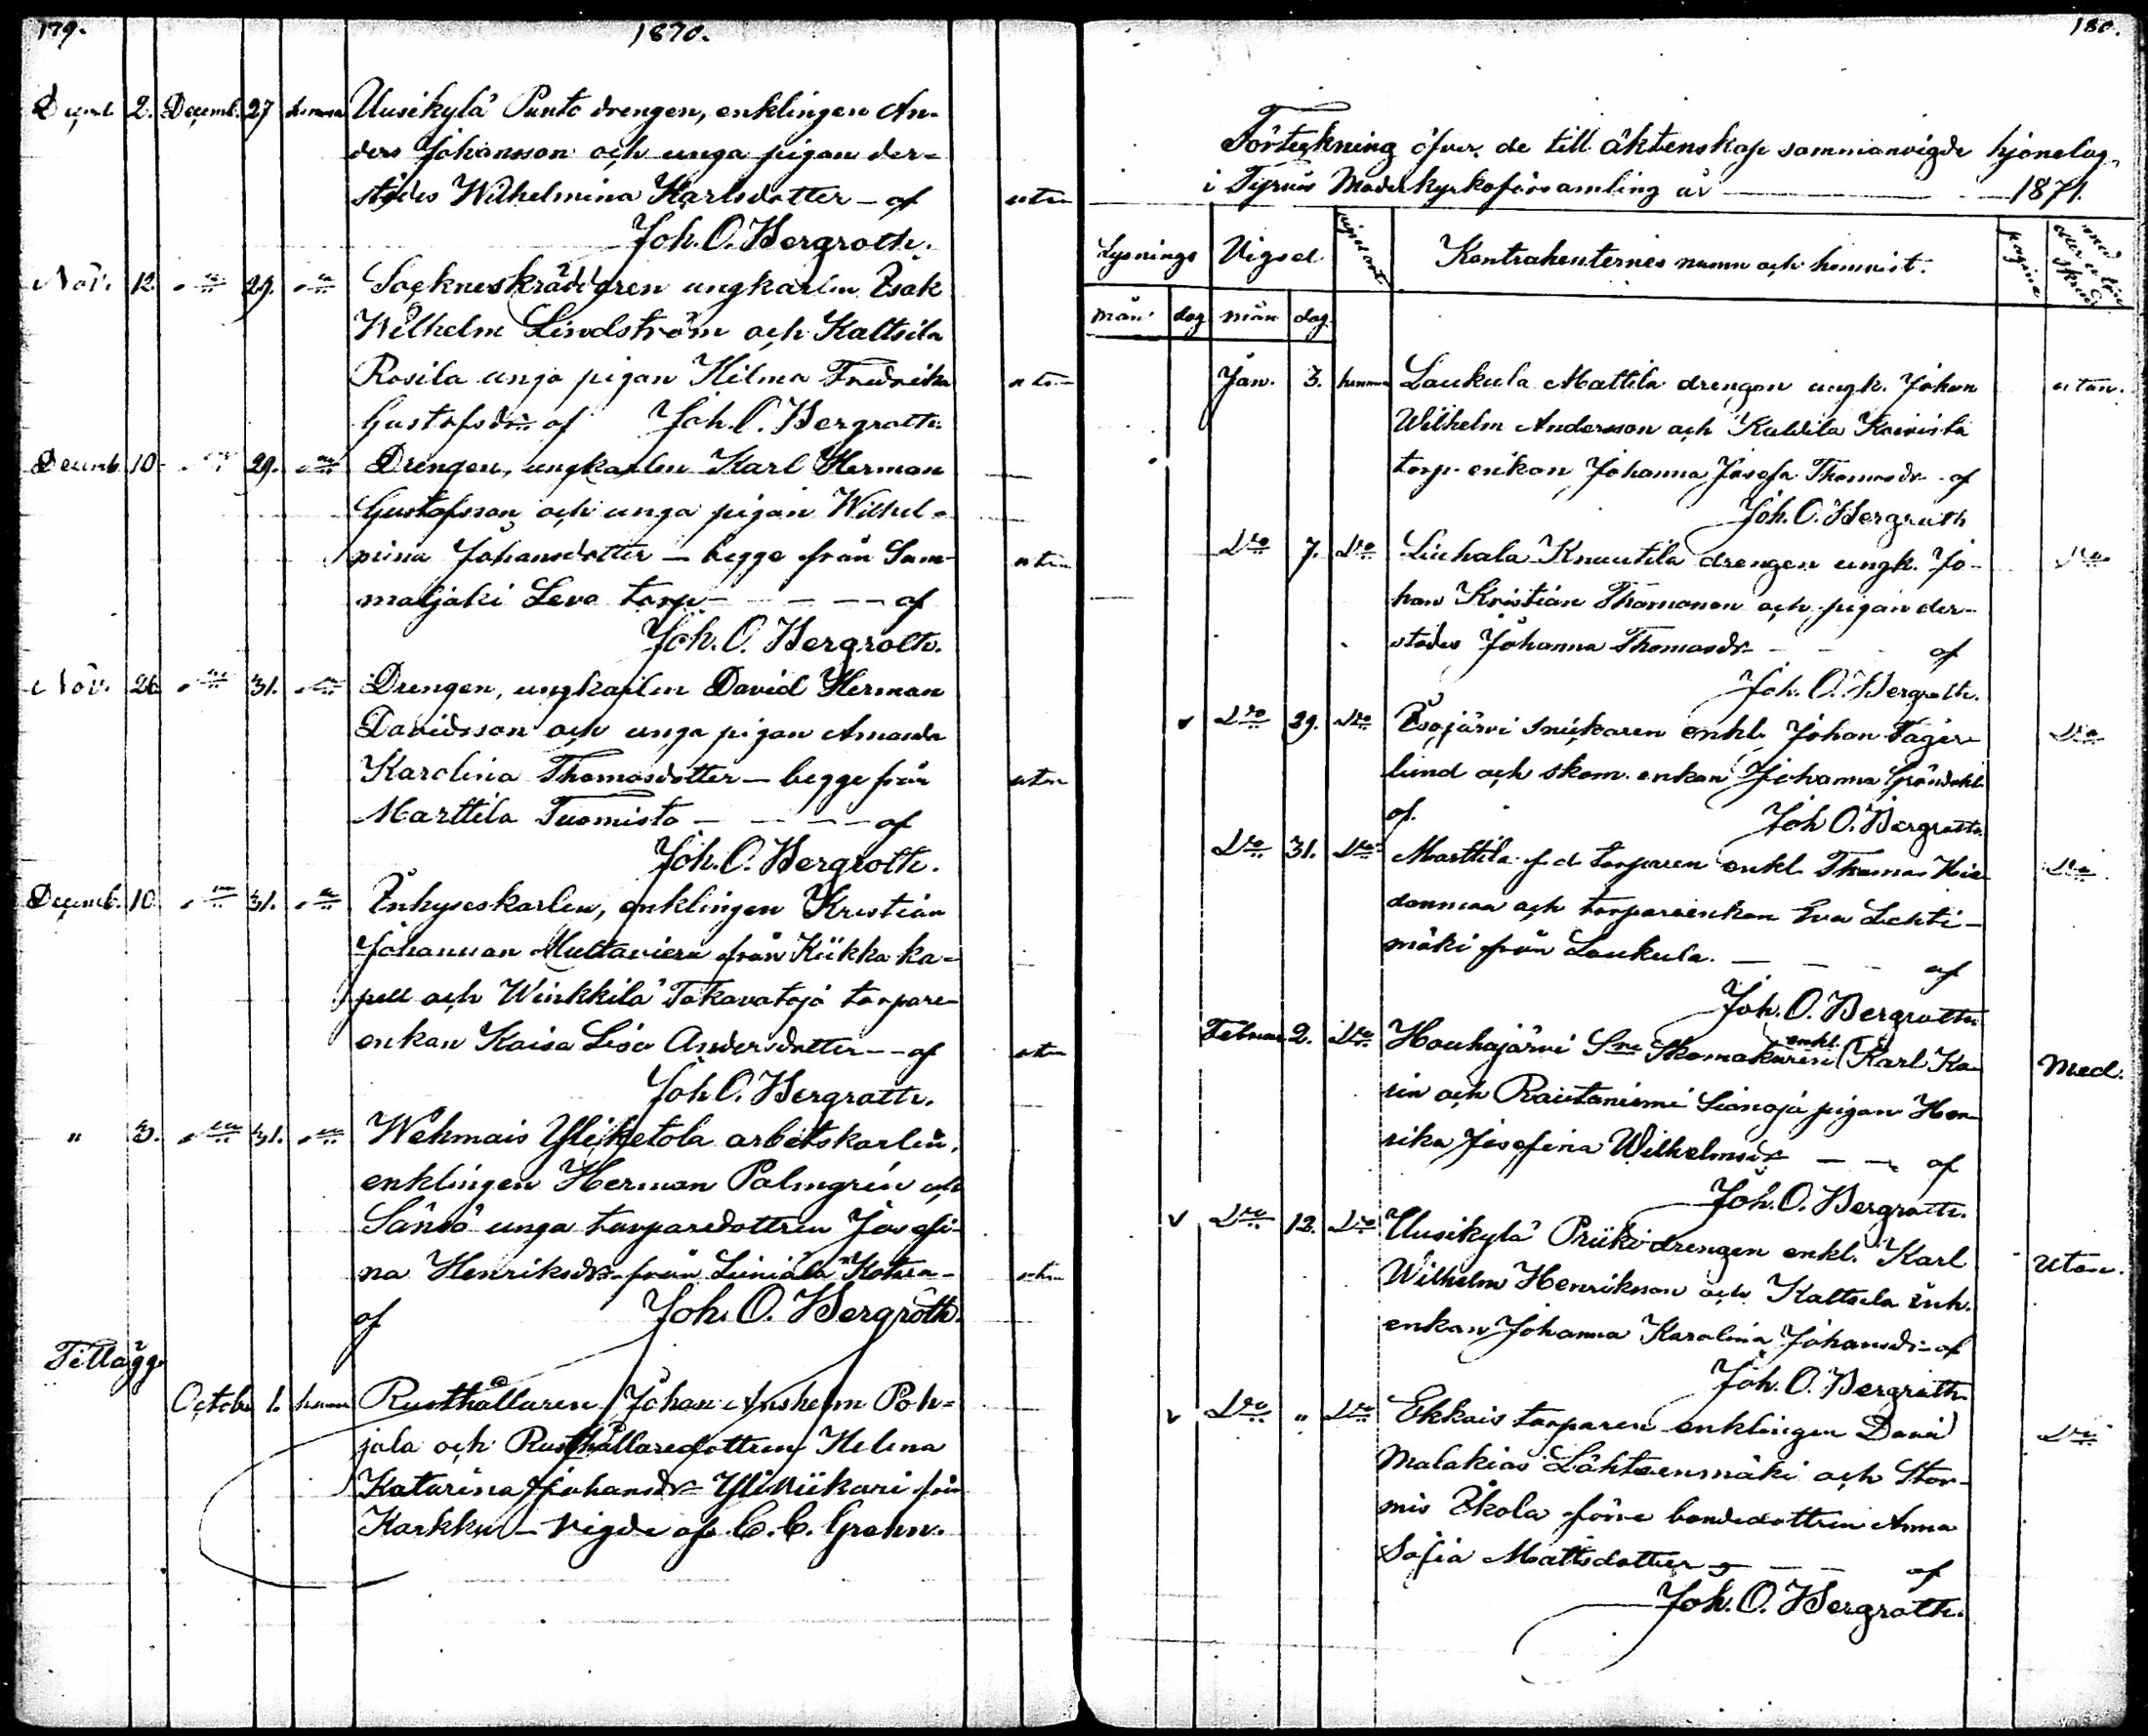 179.
1870.
Decemb. 2. Decemb. 27 hemma Uusikylä Punto drengen, enklingen An-
ders Johansson och unga pigan der-
städes Wilhelmina Karlsdotter — af utan
Joh. O. Bergroth.
Nov. 12. 29. Sockneskräddaren ungkarlen Isak
Wilhelm Lindström och Kaltsila
Rosila unga pigan Hilma Fredrika utan
Gustafsdr af Joh. O. Bergroth.
Decemb. 10. 29. Drengen, ungkarlen Karl Herman
Gustafsson och unga pigan Wilhel-
mina Johansdotter — begge från Sam- utan
maljaki Leva torp — — — — af
Joh. O. Bergroth.
Nov. 26 31. Drengen, ungkarlen David Herman
Davidsson och unga pigan Amanda
Karolina Thomasdotter — begge från utan
Marttila Tuomisto — — — — af
Joh. O. Bergroth.
Decemb. 10. 31. Inhyseskarlen, enklingen Kristian
Johansson Multaviera från Kiikka ka-
pell och Winkkilä Takavatajo torpare-
enkan Kaisa Lisa Andersdotter — af utan
Joh. O. Bergroth.
" 3. 31. Wehmais Yliketola arbetskarlen,
enklingen Herman Palmgrén och
Sänsö unga torparedottren Josefi-
na Henriksdr från Liniala Kotira- utan
af Joh. O. Bergroth.
Tillägg.
October 1. hemma Rusthållaren Johan Anshelm Poh-
jala och Rusthållaredottren Helena
Katarina Johansdr Ylinükari från
Karkku — vigde af C. C. Grahn.
180.
Förteckning öfver de till äktenskap sammanvigde hjonelag
i Tyrvis Moderkyrkoförsamling år — 1871.
Lysnings Vigsel vigselort Kontrahenternes namn och hemvist. pagina med eller utan
mån. dag mån dag.
Jan. 3. hemma Laukula Mattila drengen ungk. Johan utan.
Wilhelm Andersson och Kaltila Koivisto
torp. enkan Johanna Josefa Thomasdr af
Joh. O. Bergroth
Dto 7. Dto Liuhala Knuutila drengen ungk. Jo- Dto
han Kristian Thomasson och pigan der-
städes Johanna Thomasdr — — — af
Joh. O. Bergroth.
v Dto 29. Dto Isojärvi snickaren enkl. Johan Fager- Dto
lund och skom. enkan Johanna Gröndahl
af. Joh O. Bergroth.
Dto 31. Dto Marttila f. d. torparen enkl. Thomas Hie- Dto
danmaa och torpareenkan Eva Lehti-
mäki från Laukula. — — — af
Joh. O. Bergroth
Februar 2. Dto Houhajärvi Sne Skomakaren enkl. Karl Ka- Med.
rin och Rautaniemi Sianoja pigan Hen-
rika Josefina Wilhelmsdr — — af
Joh. O. Bergroth.
v Dto 12. Dto Uusikylä Priiki drengen enkl. Karl Utan.
Wilhelm Henriksson och Kaltsila inh.
enkan Johanna Karolina Johansdr af
Joh. O. Bergroth
v Dto " Dto Ekkois torparen enklingen David Dto
Malakias Lähteenmäki och Stor-
mis Ikola förre bondedottren Anna
Sofia Mattsdotter — — af
Joh. O. Bergroth.